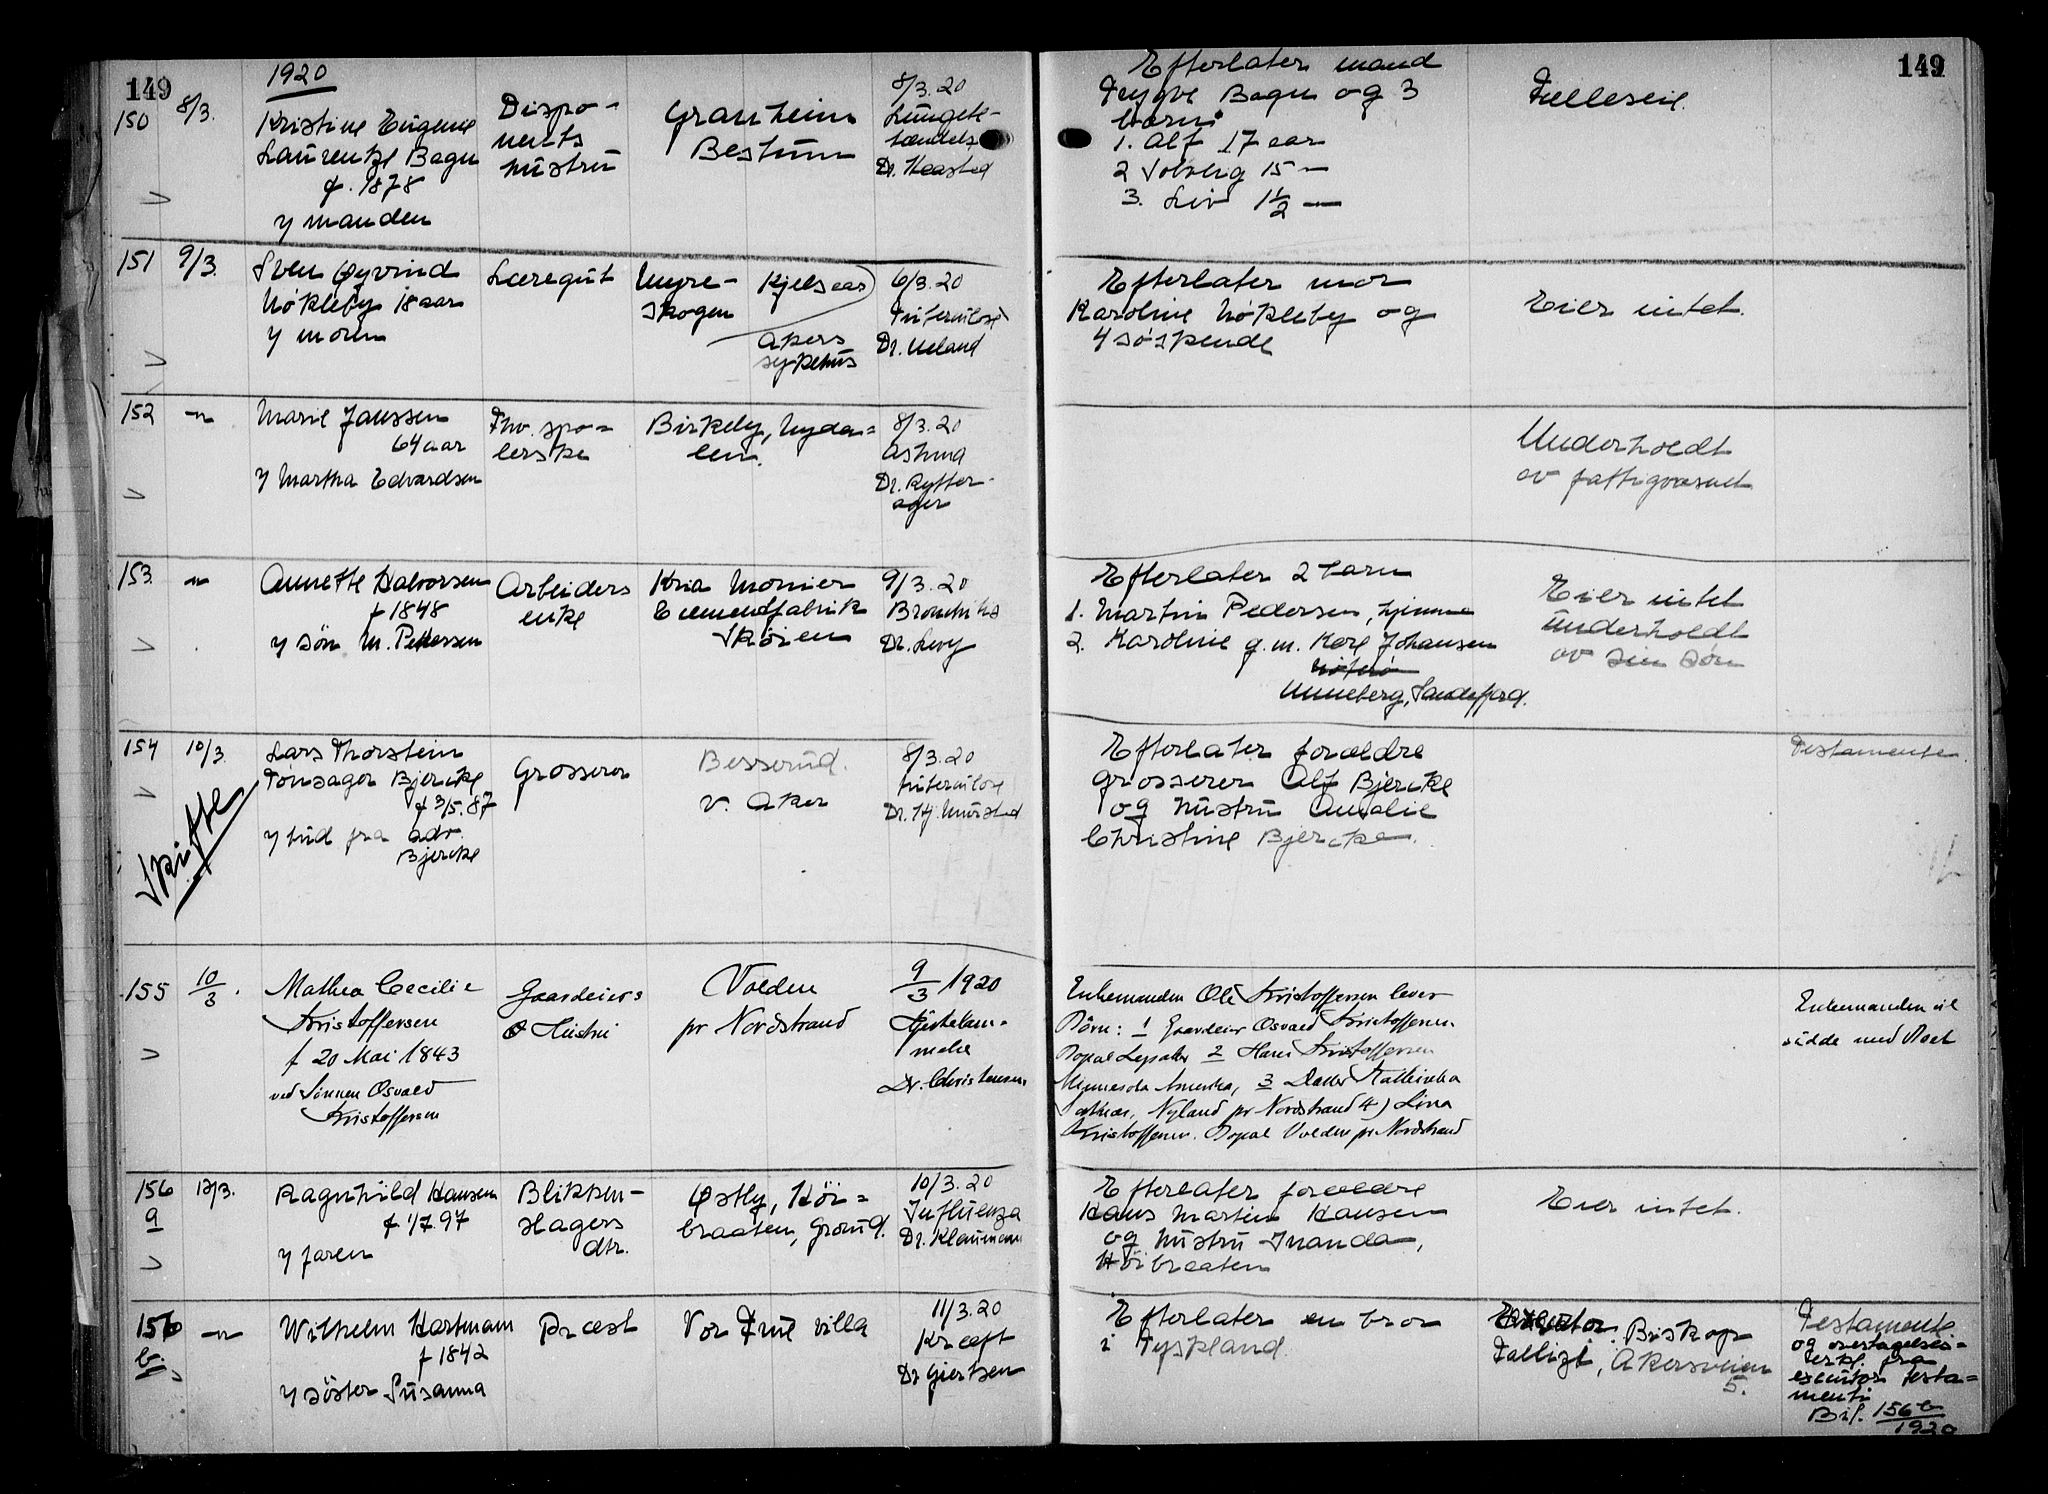 149
1920
150 8/3. Kristine Eugenie
Laurentze Bagn
f. 1878
v manden
Dispo-
nents
hustru
Granheim
Bestum
8/3.20
Lungebe-
tændelse
Efterlater mand
Trygve Bagn og 3
børn:
1. Alf 17 aar
2 Solveig 15 —
3. Liv 1½ —
Felleseie.
149
151 9/3. Sven Øyvind
Nökleby 18 aar
v moren
Læregut
Myre-
skogen
Kjelsaas
Akers
sykehus
6/3.20
Tuberculose
Dr. Ueland
Efterlater mor
Karoline Nökleby og
4 søskende
Eier intet.
152 —"— Marie Janssen
64 aar
v Martha Edvardsen
Fhv. spo-
lerske
Birkely, Nyda-
len.
8/3.20
Astma
Dr. Rytter-
ager
Underholdt
av fattigvæsnet
153. —"— Annette Halvorsen
f 1848
v søn M. Pedersen
Arbeiders
enke
Kria Monier
Cementfabrik
Skøien
9/3.20
Bronchitis
Dr. Levy
Efterlater 2 barn
1. Martin Pedersen, hjemme
2. Karoline g.m. Karl Johansen
Nøterø
Unneberg, Sandefjord.
Eier intet
Underholdt
av sin søn
154 10/3. Lars Thorstein
Tønsager Bjercke
f 3/5.87
v bud fra adv.
Bjercke
Skifte
Grosserer
Besserud.
V. Aker
8/3.20
tuberculose
Dr. Hj. Mursted
Efterlater forældre
grosserer Alf Bjercke
og hustru Amalie
Christine Bjercke.
Testamente
155 10/3. Mathea Cecilie
Kristoffersen
f 20 Mai 1843
ved Sønnen Osvald
Kristoffersen
Gaardeiers
Hustru
Volden
pr Nordstrand
9/3 1920
Hjertelam-
melse
Dr. Christensen
Enkemanden Ole Kristoffersen lever
Börn: 1 Gaardeier Osvald Kristoffersen
Bopæl Lepsaker 2 Hans Kristoffersen
Minnesota Amerika, 3 Datter Kathinka
Nyland pr Nordstrand 4) Lina
Kristoffersen. Bopæl Volden pr. Nordstrand
Enkemanden vil
sidde med Boet
156
a
12/3. Ragnhild Hansen
f 1/7.97
v faren
Blikken-
slagers
dtr.
Østly, Höi-
braaten, Grorud.
10/3.20
Influenza
Dr. Klaumann
Efterlater forældre
Hans Martin Hansen
og hustru Inanda,
Höibraaten
Eier intet.
156
b.
—"— Wilhelm Hartmann
f 1842
v søster Susanna
Præst
Vor Frue villa
11/3.20
Kræft
Dr Giertsen
Efterlater en bror
i Tyskland
Executor: Biskop
Fallize, Akersveien
5.
Testamente
og overtagelses-
erkl. fra
executor testa-
menti
Bil. 156 b
1920